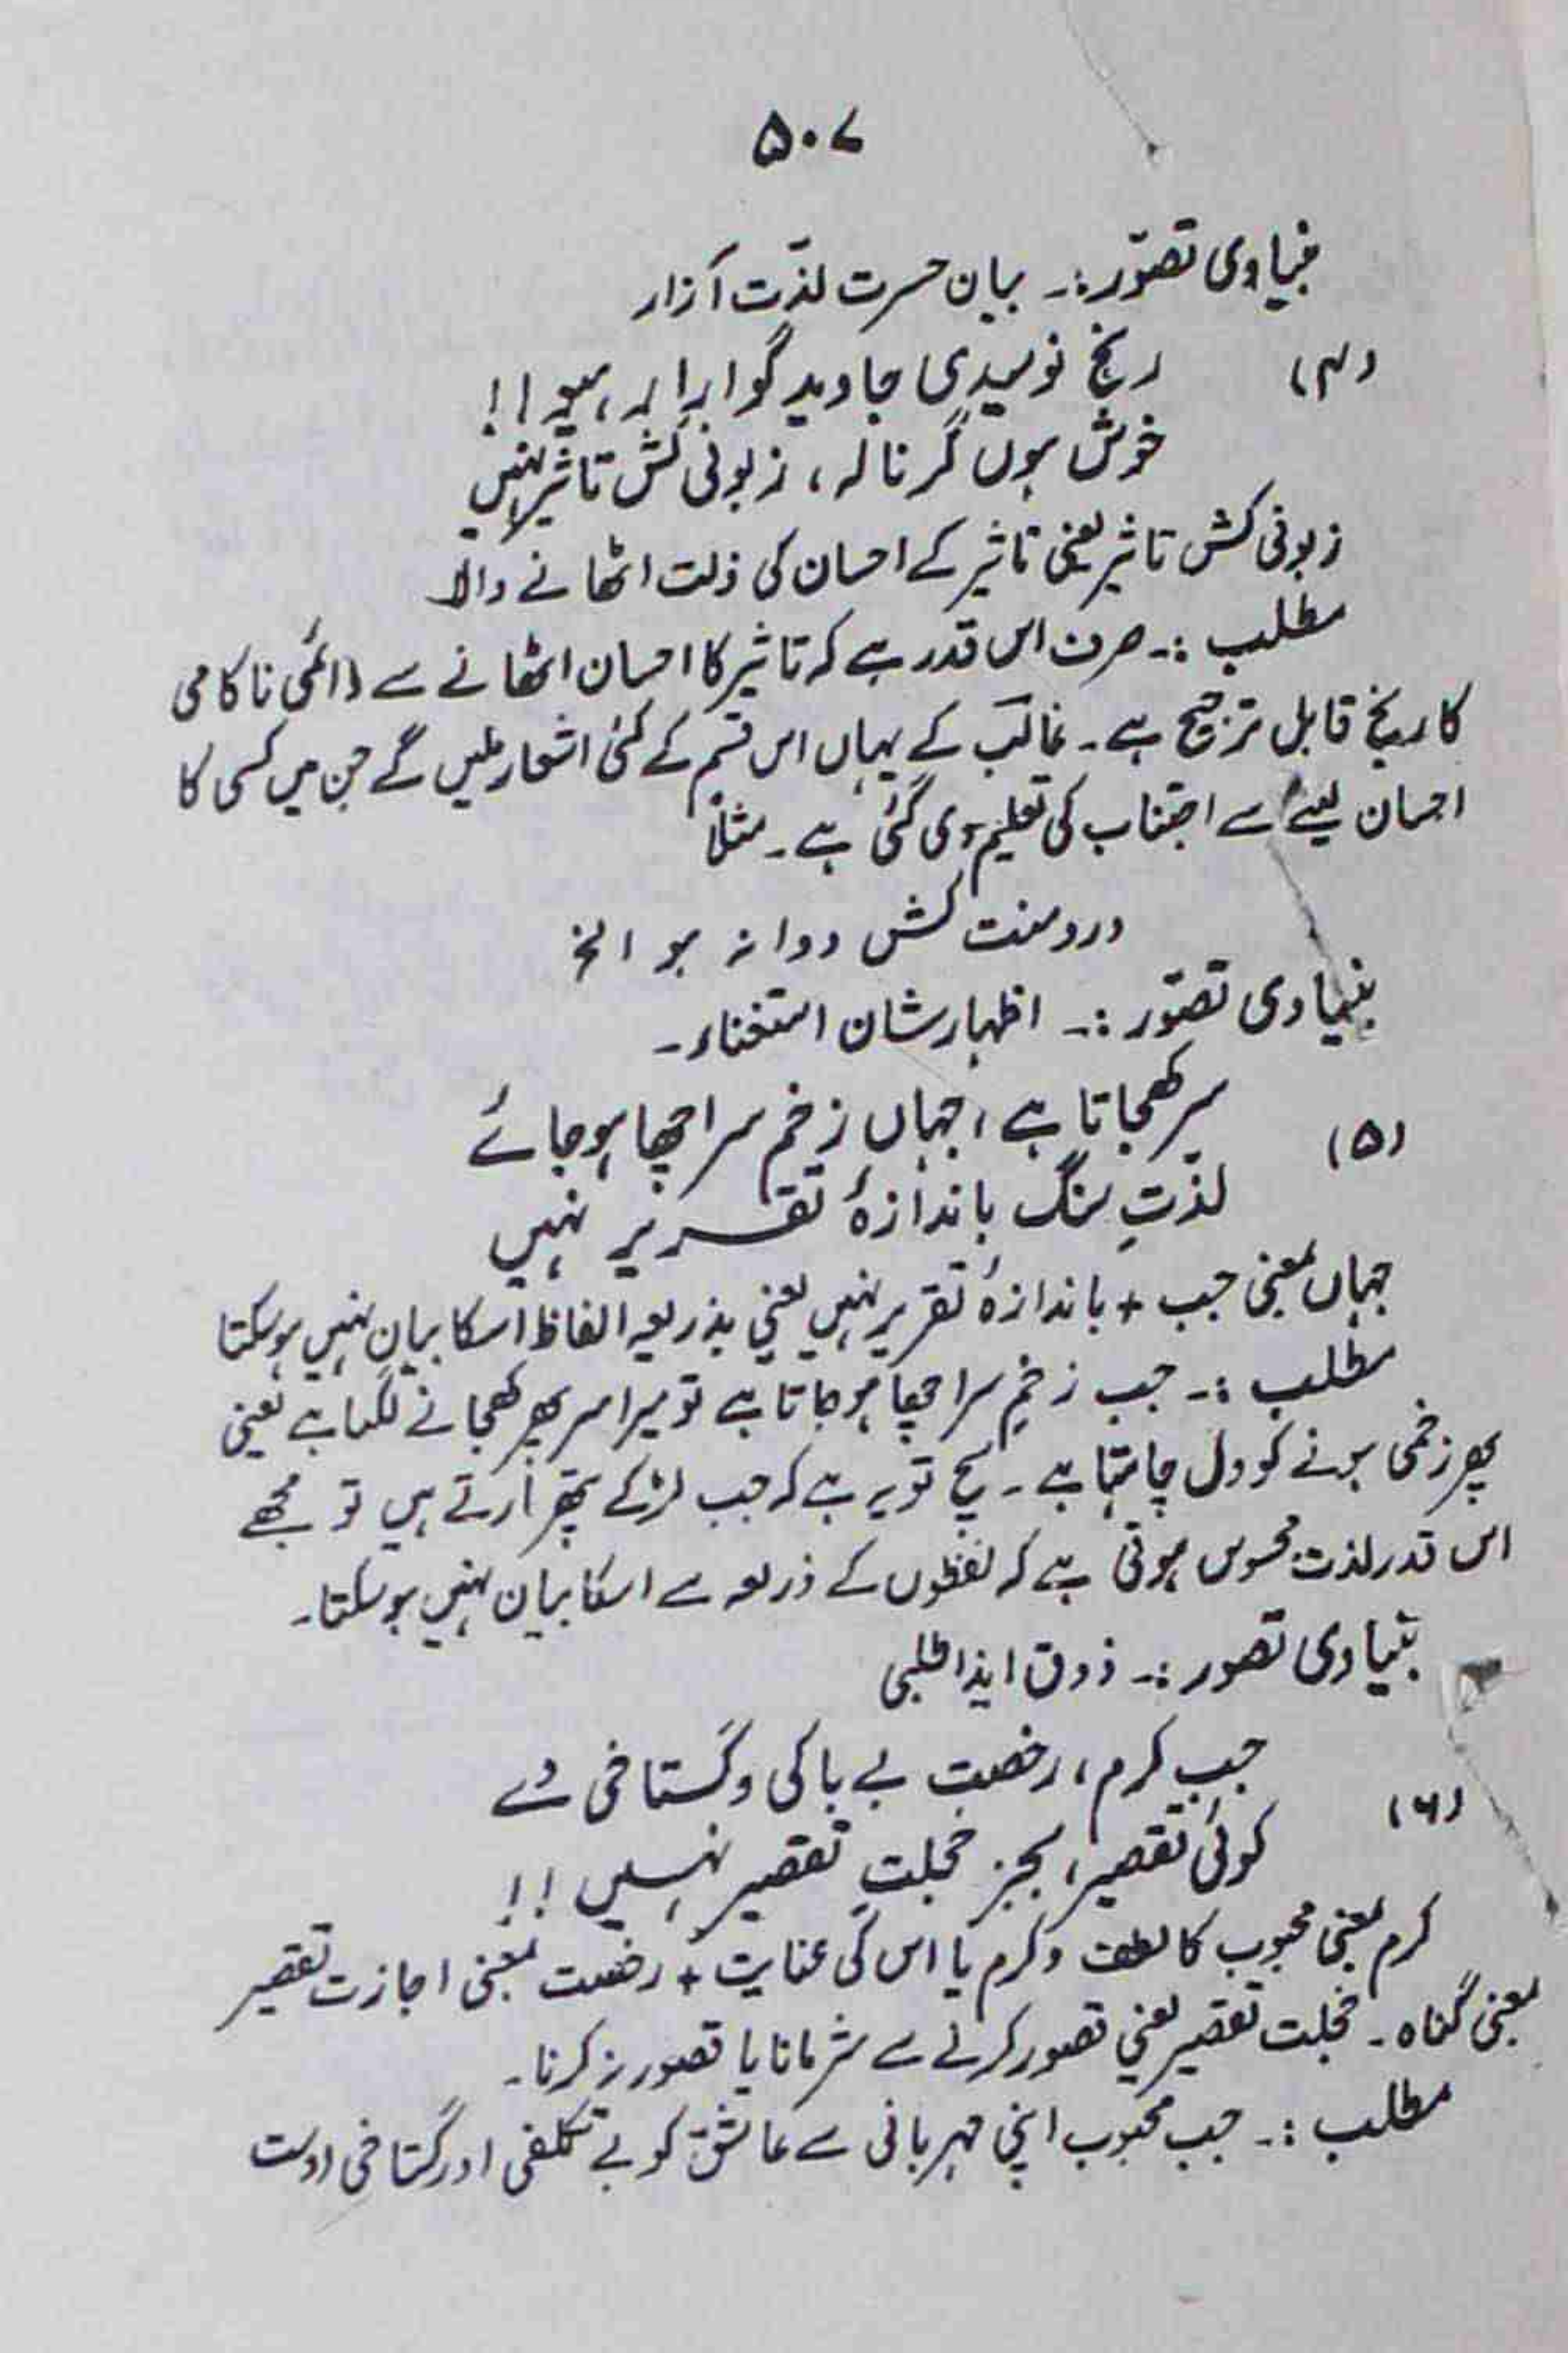 ۵۰۷
بنیادی تصوّر:۔ بیان حسرت لذّت آزار
(۴) رنج نومیدی جاوید گوارا رہیو!!
خوش ہوں گر نالہ، زبونی کش تاثیر نہیں
زبونی کش تاثیر یعنی تاثیر کے احسان کی ذلت اٹھانے والا
مطلب :۔ صرف اس قدر ہے کہ تاثیر کا احسان اٹھانے سے دائمی ناکامی
کا رنج قابل ترجیح ہے۔ غالب کے یہاں اس قسم کے کئی اشعار ملیں گے جن میں کسی کا
احسان لینے سے اجتناب کی تعلیم دی گئی ہے۔ مثلاً
درد منت کش دوا نہ ہو الخ
بنیادی تصوّر :۔ اظہار شان استغناء۔
(۵) سر کھجاتا ہے، جہاں زخم سر اچھا ہو جائے
لذّتِ سنگ باندازۂ تقریر نہیں
جہاں بمعنی جب + باندازۂ تقریر نہیں یعنی بذریعہ الفاظ اسکا بیان نہیں ہو سکتا
مطلب :۔ جب زخمِ سر اچھا ہو جاتا ہے تو میرا سر پھر کھجانے لگتا ہے یعنی
پھر زخمی ہونے کو دل چاہتا ہے۔ سچ تو یہ ہے کہ جب لڑکے پتھر مارتے ہیں تو مجھے
اس قدر لذت محسوس ہوتی ہے کہ لفظوں کے ذریعہ سے اسکا بیان نہیں ہو سکتا۔
بنیادی تصور :۔ ذوق ایذا طلبی
(۶) جب کرم، رخصت بے باکی و گستاخی دے
کوئی تقصیر، بجز خجلتِ تقصیر نہیں!!
کرم بمعنی محبوب کا لطف و کرم یا اس کی عنایت + رخصت بمعنی اجازت تقصیر
بمعنی گناہ۔ خجلت تقصیر یعنی تصور کرنے سے شرمانا یا تصور نہ کرنا۔
مطلب :۔ جب محبوب اپنی مہربانی سے عاشق کو بے تکلفی اور گستاخی